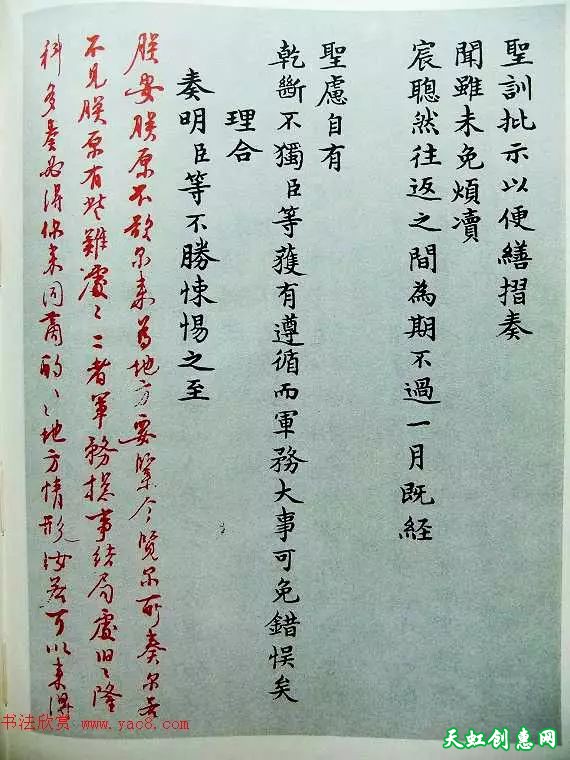 聖訓批示以便繕摺奏
聞雖未免煩瀆
宸聰然往返之間為期不過一月既經
聖慮自有
乾斷不獨臣等獲有遵循而軍務大事可免錯悞矣
理合
奏明臣等不勝悚惕之至
朕安朕原不欲尔來為地方要緊今覽尔所奏尔若
不見朕原有些難處〻二者軍務總事結局處旧〻隆
科多奏必得你來同商酌〻地方情形汝若可以來得
书法欣赏 www.yac8.com
天虹创惠网